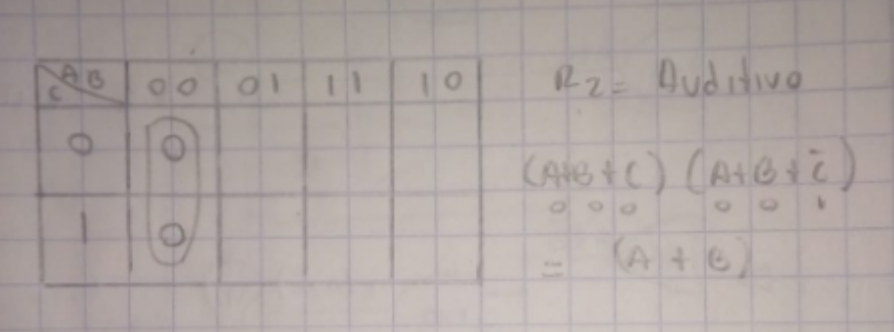 AB
C
00 01 11 10
0 0
1 0
R2 = Auditivo
(A+B+C) (A+B+C̄)
0 0 0 0 0 1
= (A + B)